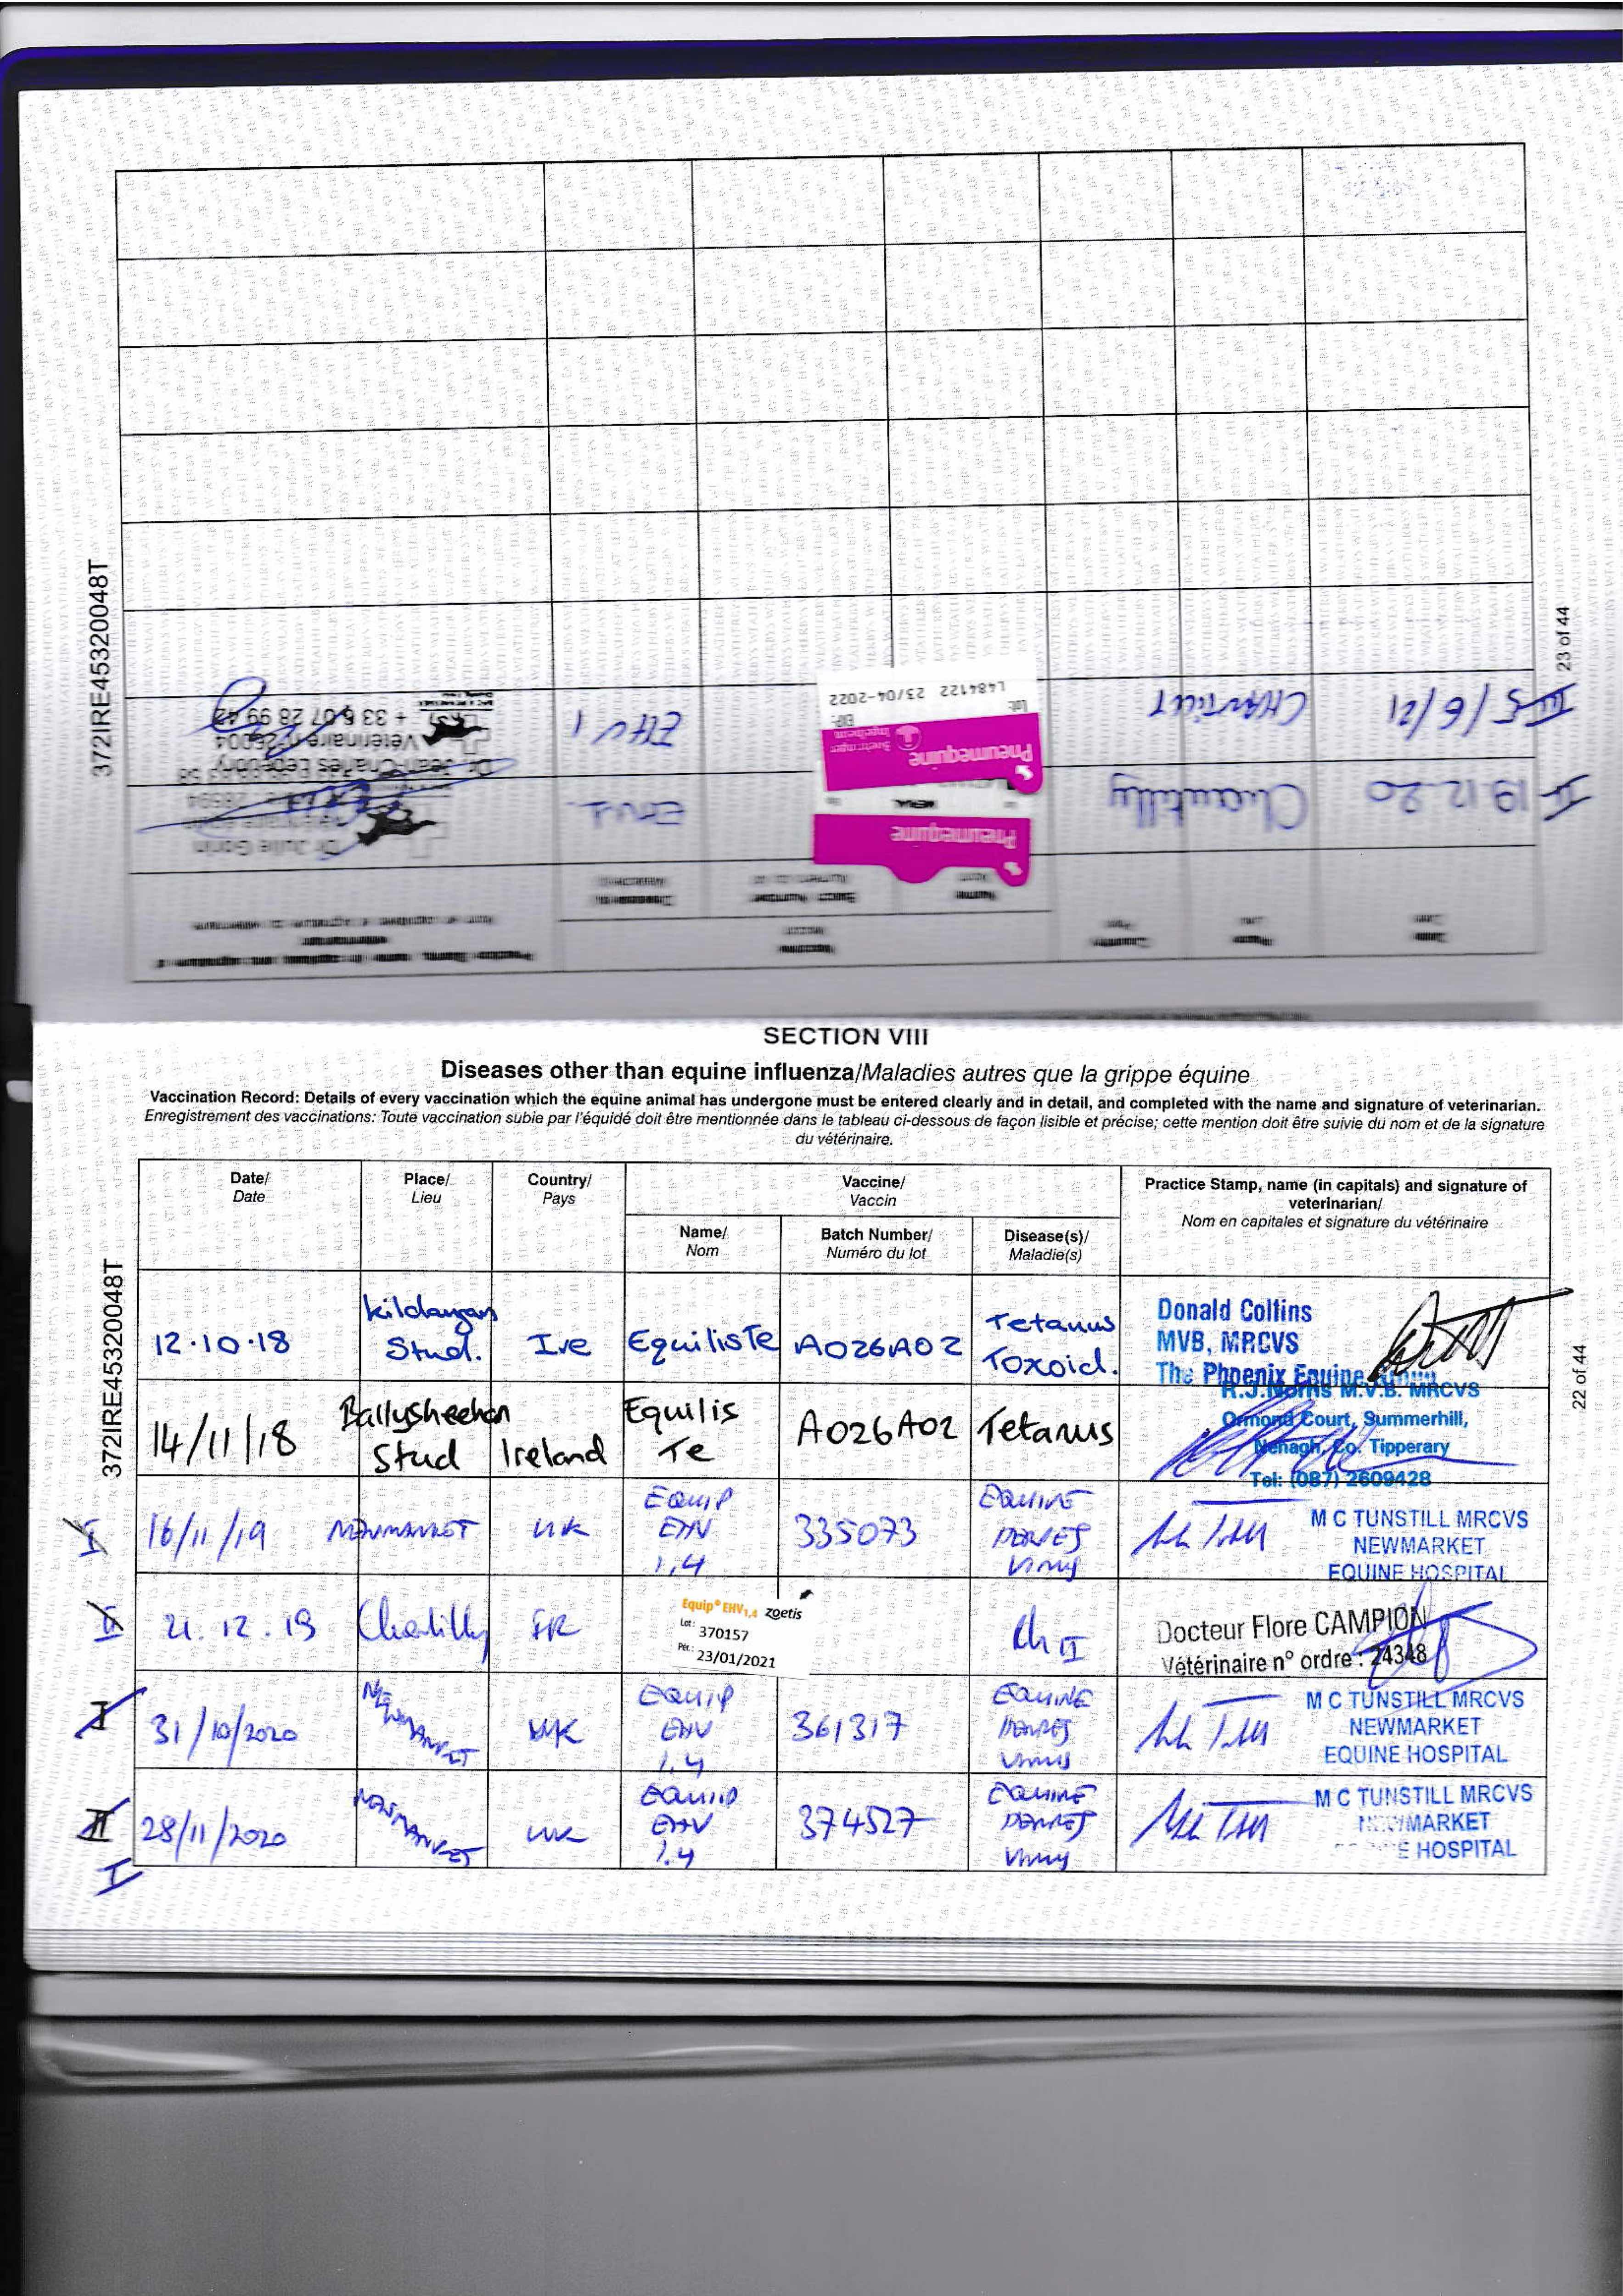 372IRE45320048T
23 of 44
II 19.12.20
Chantilly
Pneumequine
MERIAL
EHV1
Dr Julie Gorin
III 5/6/21
CHANTILLY
Pneumequine
Boehringer
Ingelheim
Lot:
EXP:
L484122 23/04-2022
EHV 1
Dr Jean-Charles
Vétérinaire n° 26004
+ 33 6 07 28 99 42
SECTION VIII
Diseases other than equine influenza/Maladies autres que la grippe équine
Vaccination Record: Details of every vaccination which the equine animal has undergone must be entered clearly and in detail, and completed with the name and signature of veterinarian.
Enregistrement des vaccinations: Toute vaccination subie par l'équidé doit être mentionnée dans le tableau ci-dessous de façon lisible et précise; cette mention doit être suivie du nom et de la signature
du vétérinaire.
Date/
Date
Place/
Lieu
Country/
Pays
Vaccine/
Vaccin
Name/
Nom
Batch Number/
Numéro du lot
Disease(s)/
Maladie(s)
Practice Stamp, name (in capitals) and signature of
veterinarian/
Nom en capitales et signature du vétérinaire
372IRE45320048T
22 of 44
12.10.18
Kildangan
Stud.
Ire
Equilis Te
A026A02
Tetanus
Toxoid.
Donald Collins
MVB, MRCVS
The Phoenix Equine
14/11/18
Ballysheehan
Stud
Ireland
Equilis
Te
A026A02
Tetanus
R.J.Norris M.V.B. MRCVS
Ormond Court, Summerhill,
Nenagh, Co. Tipperary
Tel: (087) 2609428
I
16/11/19
NEWMARKET
UK
EQUIP
EHV
1,4
335073
EQUINE
HERPES
VIRUS
M C TUNSTILL MRCVS
NEWMARKET
EQUINE HOSPITAL
II
21.12.19
Chantilly
FR
Equip® EHV1,4 zoetis
Lot: 370157
Pér.: 23/01/2021
Docteur Flore CAMPION
Vétérinaire n° ordre : 24348
I
31/10/2020
NEWMARKET
UK
EQUIP
EHV
1,4
361317
EQUINE
HERPES
VIRUS
M C TUNSTILL MRCVS
NEWMARKET
EQUINE HOSPITAL
II
I
28/11/2020
NEWMARKET
UK
EQUIP
EHV
1.4
374527
EQUINE
HERPES
VIRUS
M C TUNSTILL MRCVS
NEWMARKET
HOSPITAL